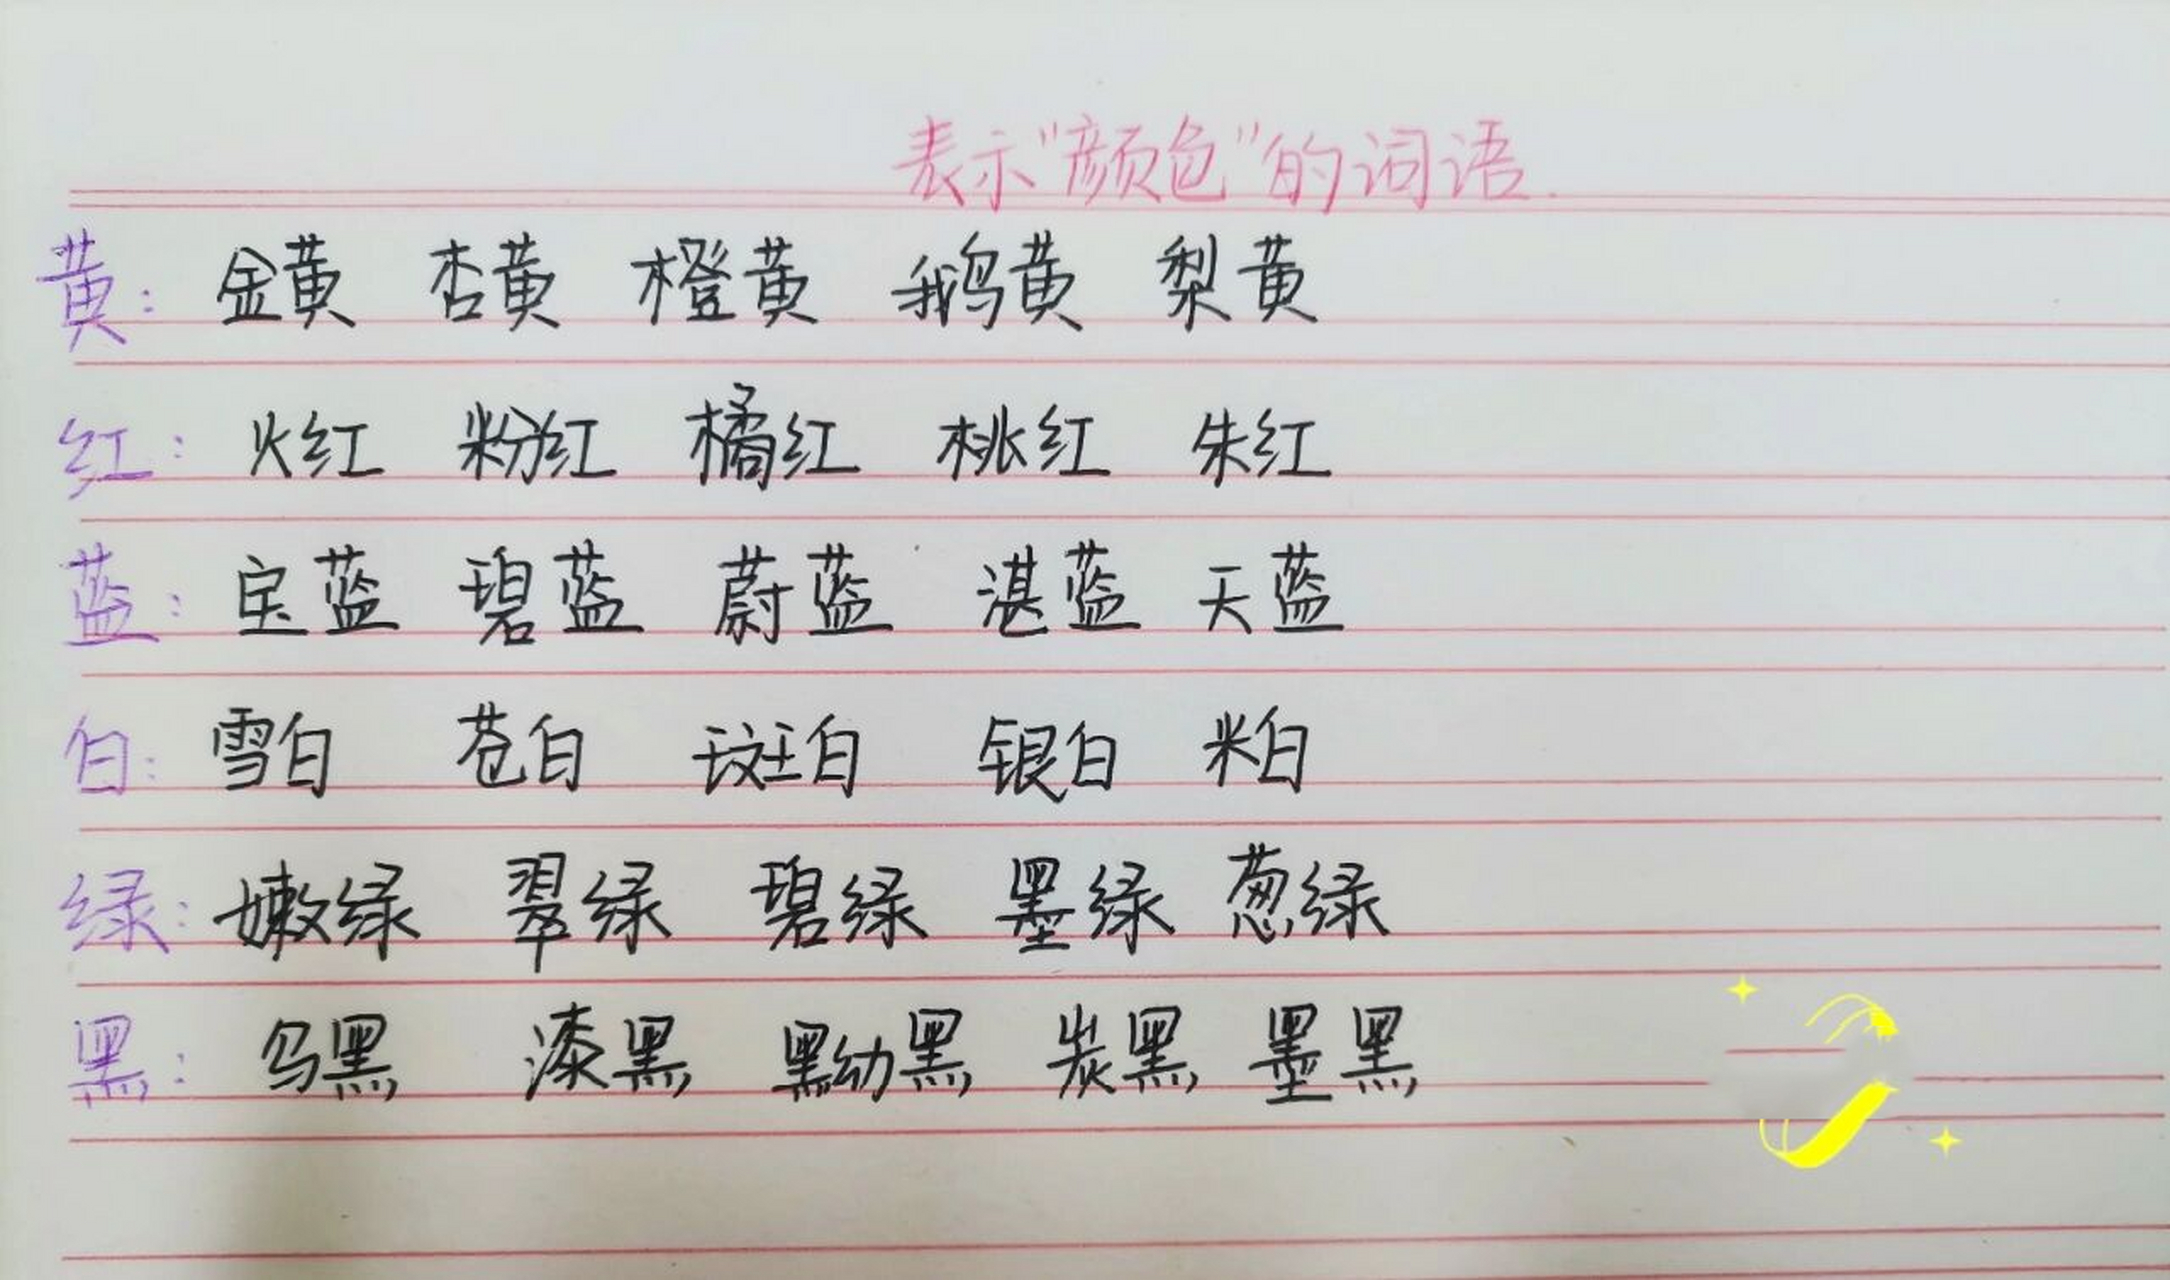 表示“颜色”的词语.
黄: 金黄 杏黄 橙黄 鹅黄 梨黄
红: 火红 粉红 橘红 桃红 朱红
蓝: 宝蓝 碧蓝 蔚蓝 湛蓝 天蓝
白: 雪白 苍白 斑白 银白 米白
绿: 嫩绿 翠绿 碧绿 墨绿 葱绿
黑: 乌黑 漆黑 黝黑 炭黑 墨黑